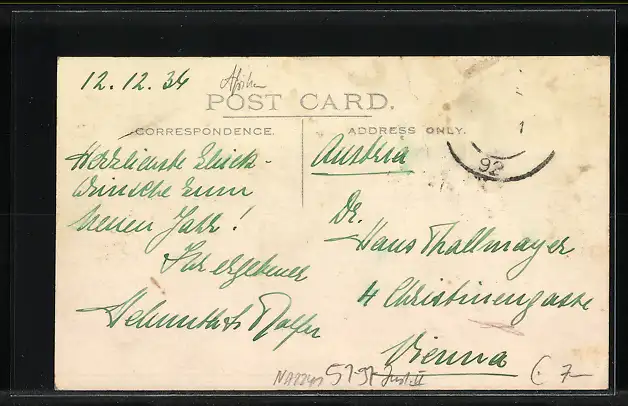 12.12.34
Afrika
POST CARD.
CORRESPONDENCE.
ADDRESS ONLY.
Herzlichste Glück-
wünsche zum
Neuen Jahr!
Ihr ergebener
Austria
Dr.
Hans Thallmayer
4 Christinengasse
Vienna
1
92
7